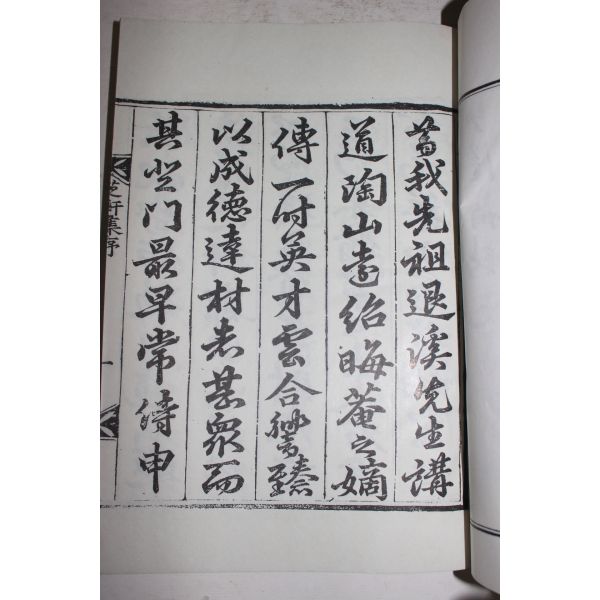 昔我先祖退溪先生講
道陶山遠紹晦菴之嫡
傳一時英才雲合響臻
以成德達材者甚衆而
其登門最早常侍申
芝軒集序
一